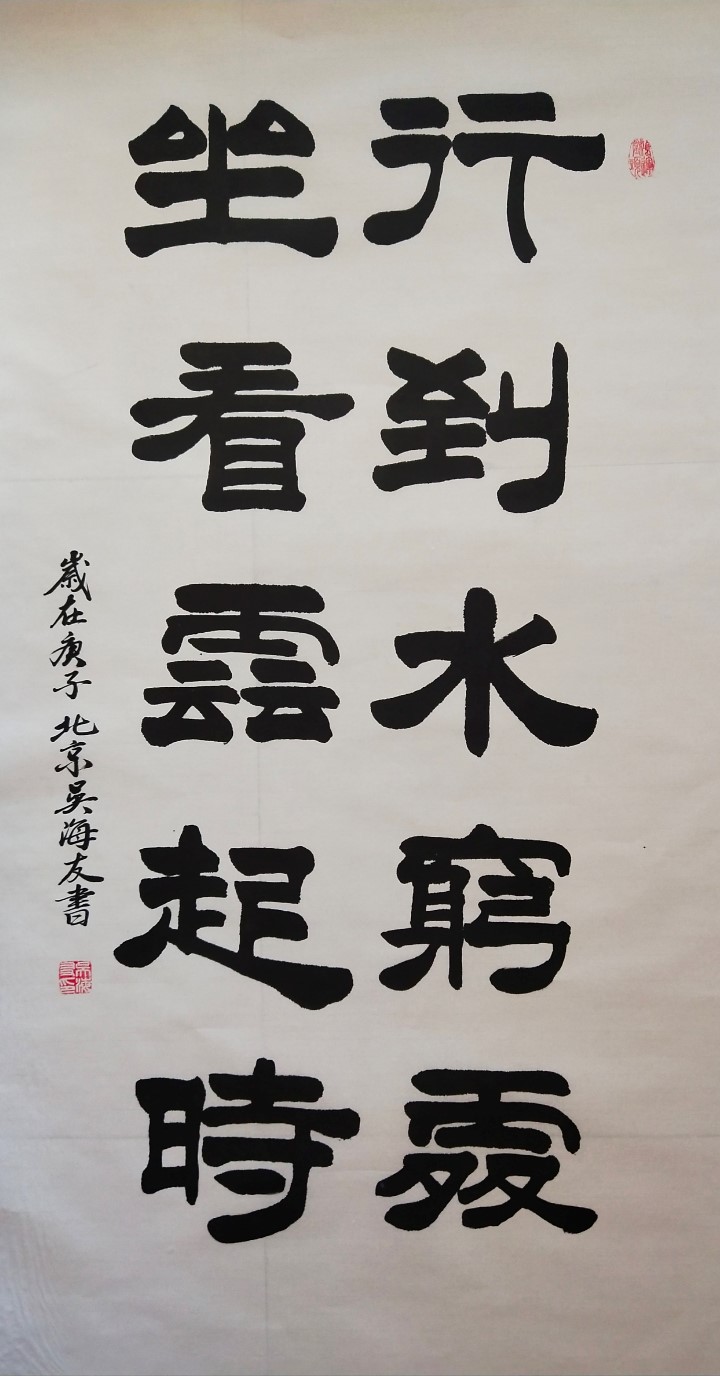 行到水窮處
坐看雲起時
歲在庚子 北京吳海友書